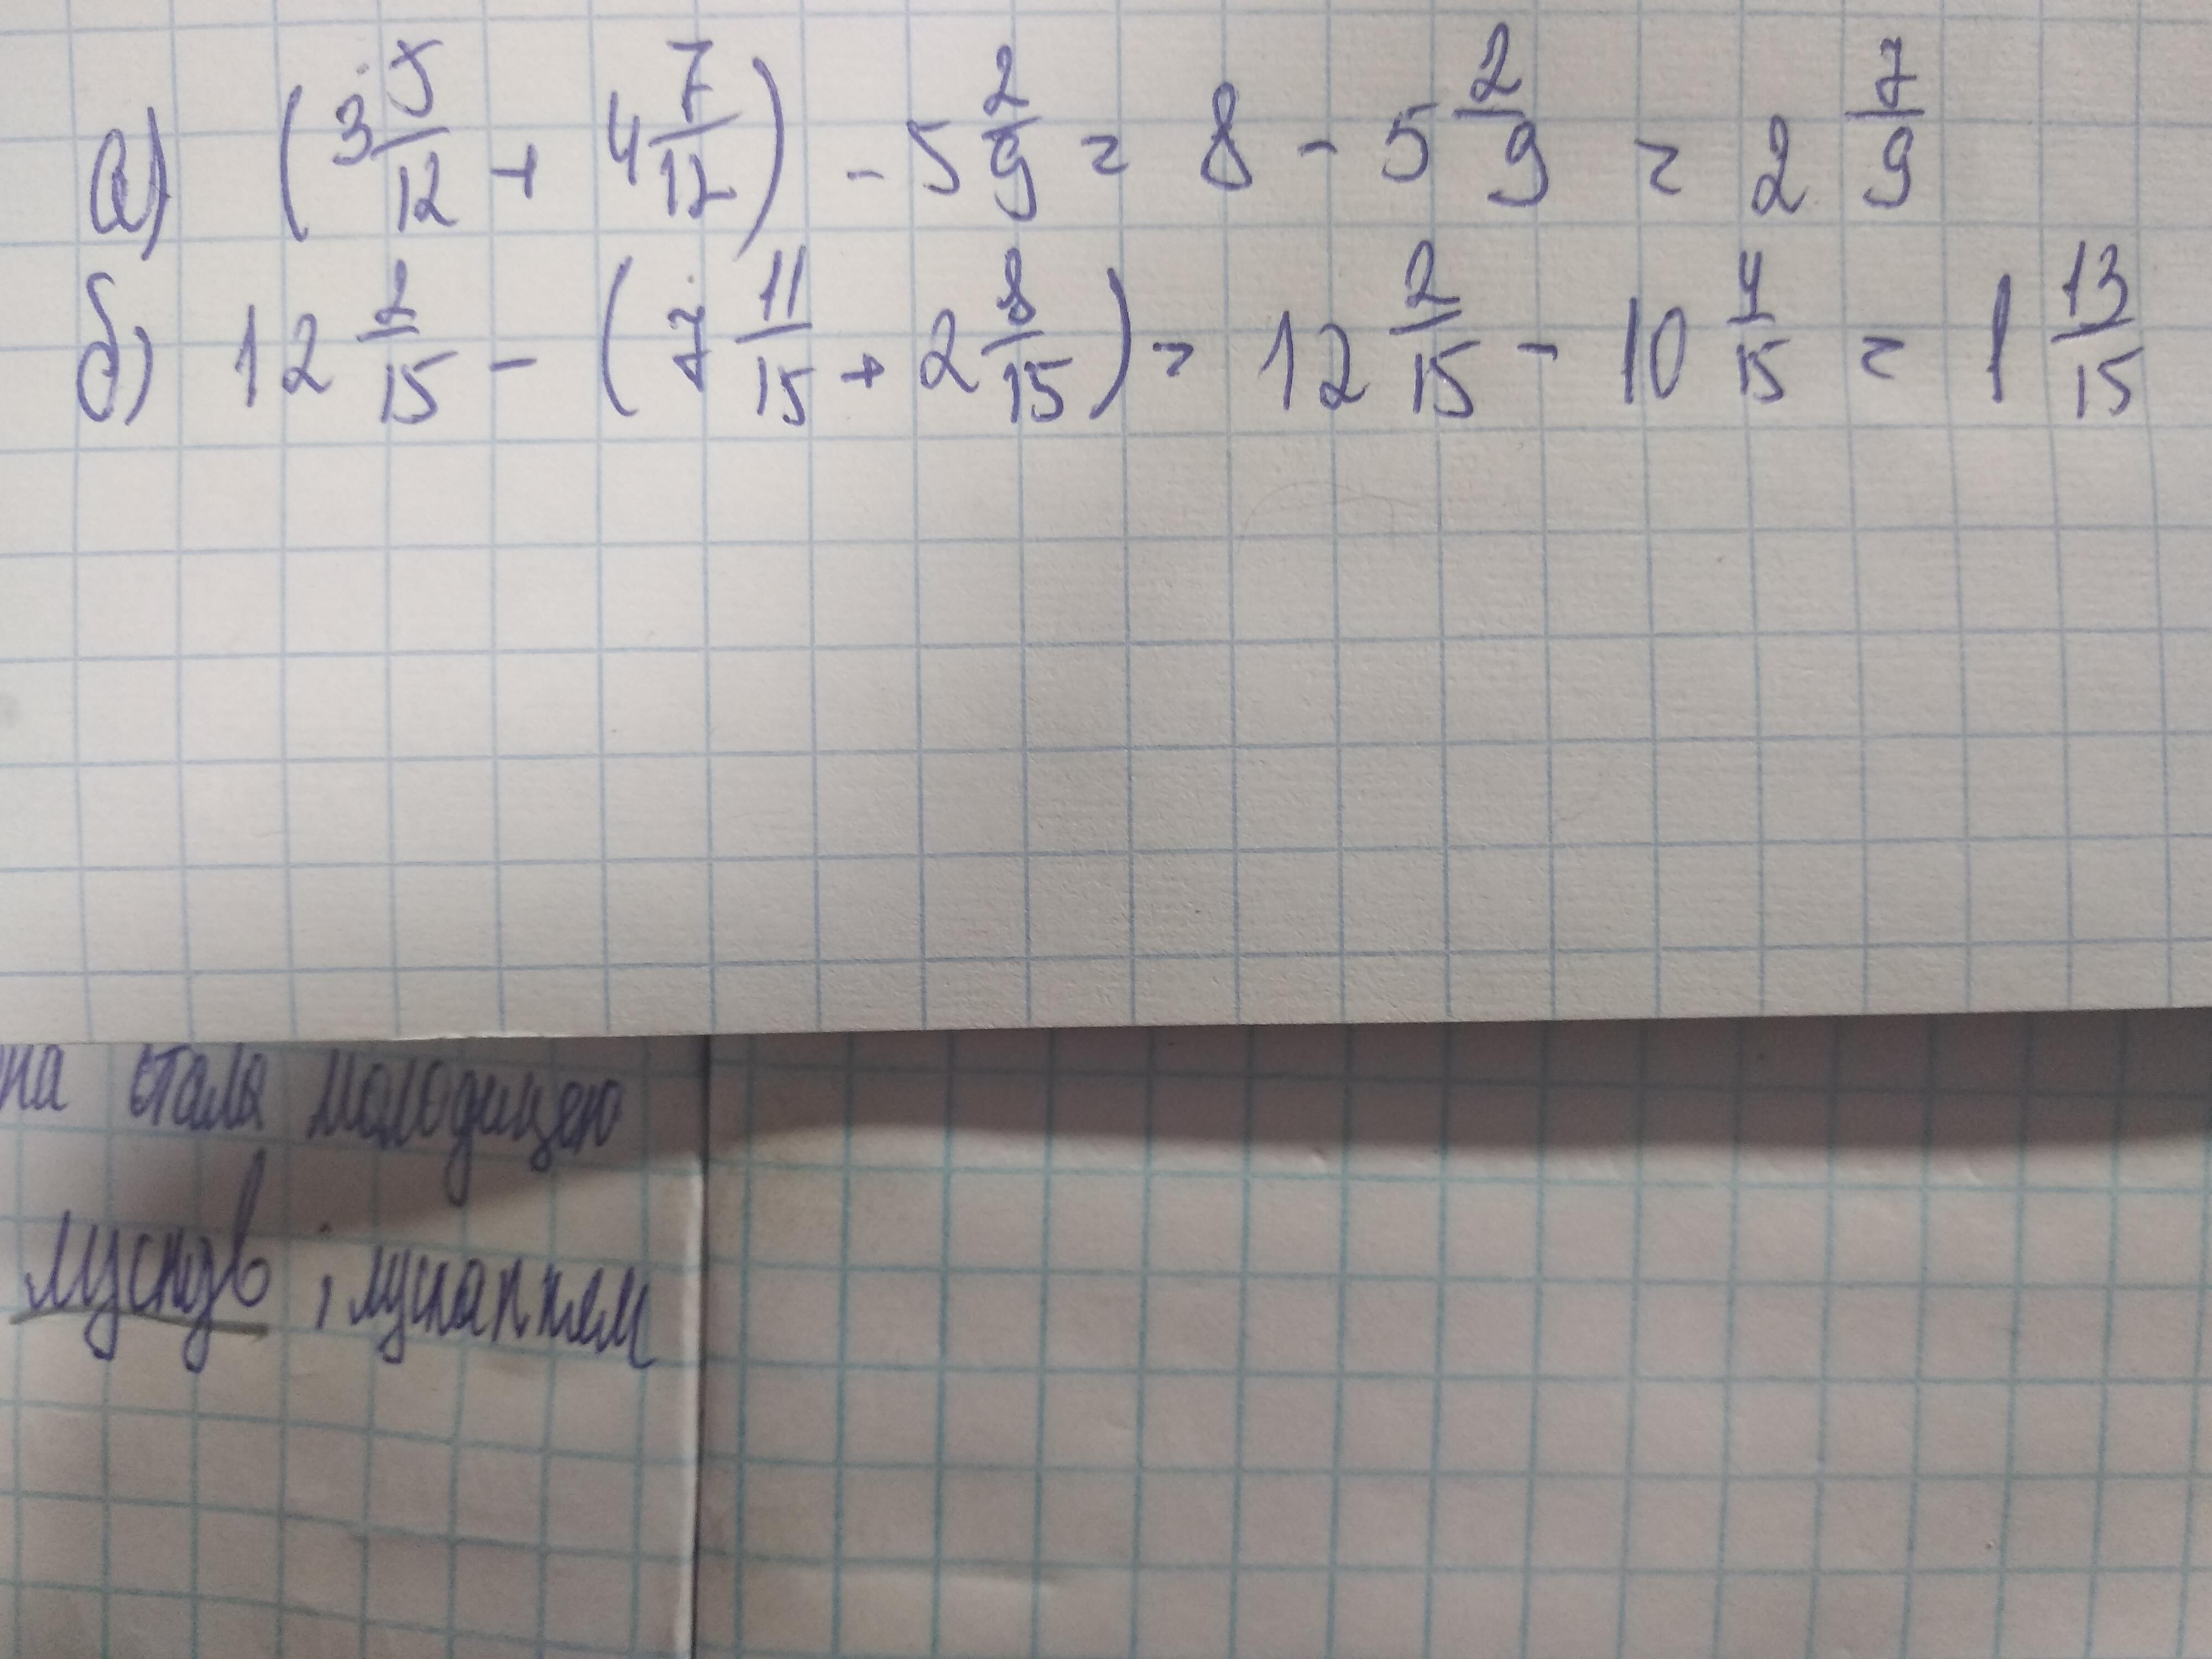 а) (3 5/12 + 4 7/12) - 5 2/9 = 8 - 5 2/9 = 2 7/9
б) 12 2/15 - (7 11/15 + 2 8/15) = 12 2/15 - 10 4/15 = 1 13/15
на стала молодицею
лускав і лусканням